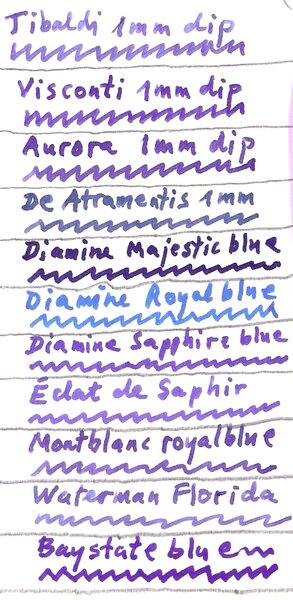 Tibaldi 1mm dip
Visconti 1mm dip
Aurora 1mm dip
De Atramentis 1mm
Diamine Majestic blue
Diamine Royal blue
Diamine Sapphire blue
Eclat de Saphir
Montblanc royalblue
Waterman Florida
Baystate blue